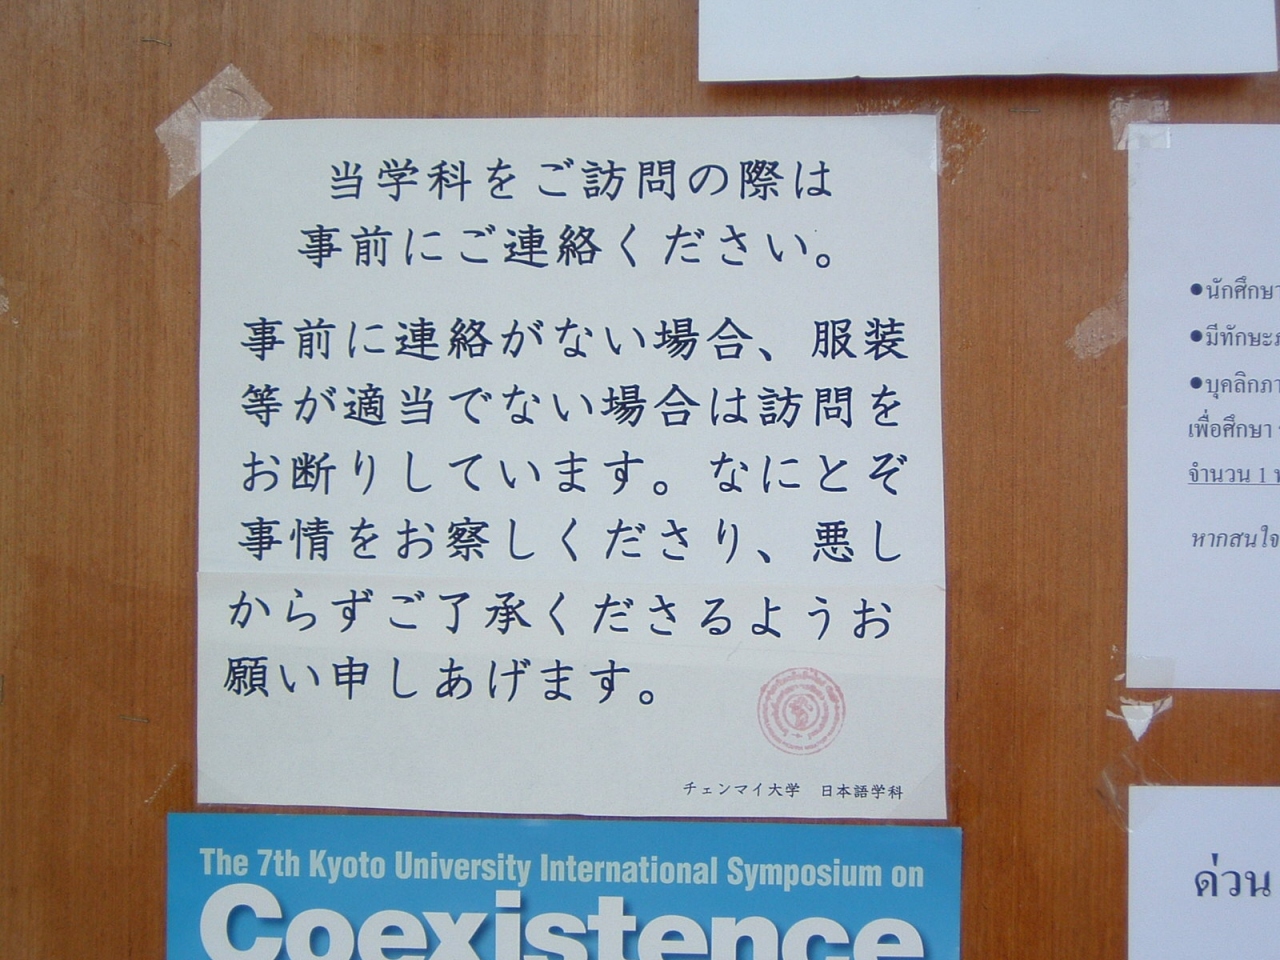 当学科をご訪問の際は
事前にご連絡ください。
事前に連絡がない場合、服装
等が適当でない場合は訪問を
お断りしています。なにとぞ
事情をお察しくださり、悪し
からずご了承くださるようお
願い申しあげます。
チェンマイ大学 日本語学科
The 7th Kyoto University International Symposium on
Coexistence
●นักศึกษา
●มีทักษะ
●บุคลิกภา
เพื่อศึกษา
จำนวน 1
หากสนใจ
ด่วน